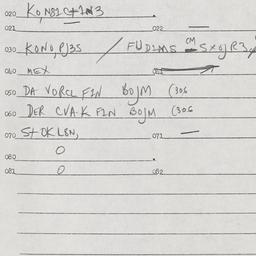 020 KO,N81C+1N3
021 — 022 —
030 KONO,PJ3S / FUD1MS CM SXOJR3,
040 MEX 041
050 DA VORCL F1N BOJM (306
060 DER CVA.K F1N BOJM (306
070 St OK L8N, 071 —
080 0
081 0 082